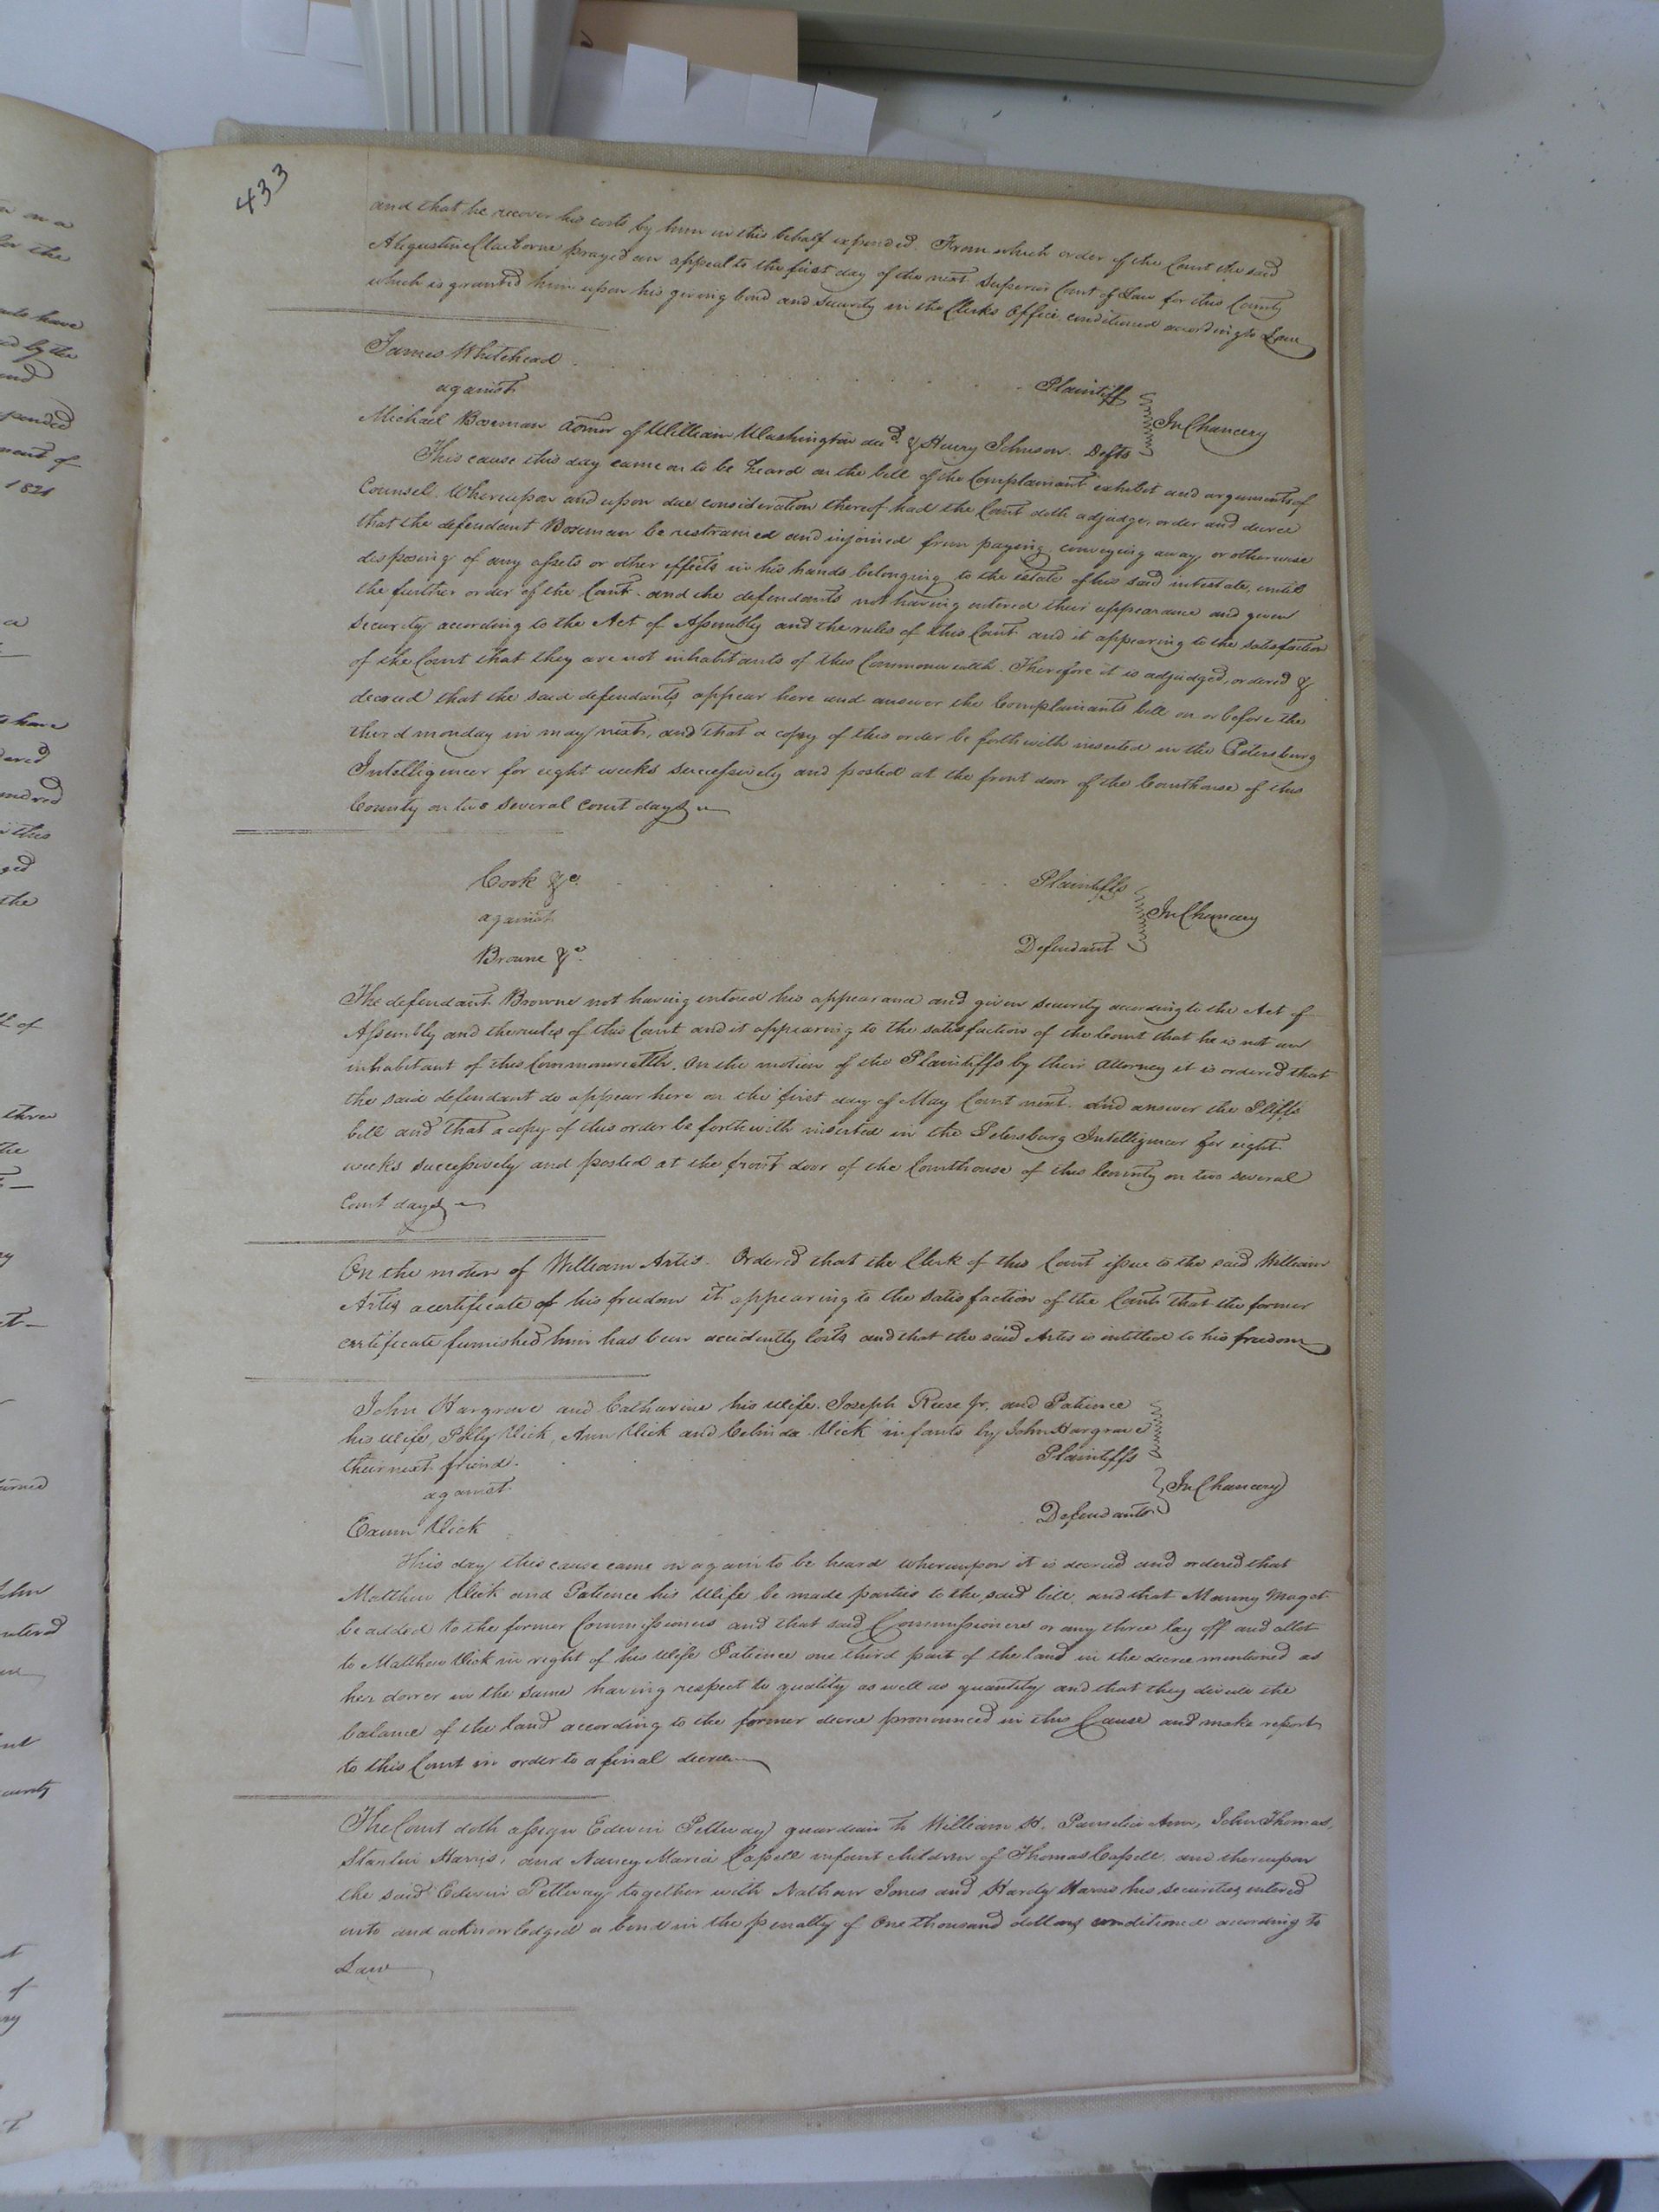 433
and that he recover his costs by him in this behalf expended. From which order of the Court the said
Augustine Claiborne prayed an appeal to the first day of the next Superior Court of Law for this County
which is granted him upon his giving bond and security in the Clerks Office conditioned according to Law
James Whitehead Plaintiff
against In Chancery
Michael Boseman admor of William Washington decd. & Henry Johnson. Defts
This cause this day came on to be heard on the bill of the Complainant exhibit and arguments of
Counsel. Whereupon and upon due consideration thereof had the Court doth adjudge, order and decree
that the defendant Boseman be restrained and injoined from paying, conveying away, or otherwise
disposing of any assets or other effects in his hands belonging to the estate of his said intestate, until
the further order of the Court. and the defendants not having entered their appearance and given
security according to the Act of Assembly and the rules of this Court and it appearing to the satisfaction
of the Court that they are not inhabitants of this Commonwealth. Therefore it is adjudged, ordered &
decreed that the said defendants appear here and answer the Complainants bill on or before the
third monday in may next, and that a copy of this order be forthwith inserted in the Petersburg
Intelligencer for eight weeks successively and posted at the front door of the Courthouse of this
County on two several court days
Cook &c. Plaintiffs
against In Chancery
Browne &c. Defendant
The defendant Browne not having entered his appearance and given security according to the Act of
Assembly and the rules of this Court and it appearing to the satisfaction of the Court that he is not an
inhabitant of this Commonwealth. On the motion of the Plaintiffs by their attorney it is ordered that
the said defendant do appear here on the first day of May Court next. and answer the Pltffs
bill and that a copy of this order be forthwith inserted in the Petersburg Intelligencer for eight
weeks successively and posted at the front door of the Courthouse of this County on two several
Court days
On the motion of William Artis. Ordered that the Clerk of this Court issue to the said William
Artis a certificate of his freedom it appearing to the satisfaction of the Court that the former
certificate furnished him has been accidently lost, and that the said Artis is intitled to his freedom
John Hargrave and Catharine his wife. Joseph Reese Jr. and Patience
his wife, Polly Vick, Ann Vick and Celinda Vick infants by John Hargrave
their next friend. Plaintiffs
against In Chancery
Exum Vick Defendants
This day this cause came on again to be heard whereupon it is decreed and ordered that
Matthew Vick and Patience his wife be made parties to the said bill, and that Manny Maget
be added to the former Commissioners and that said Commissioners or any three lay off and allot
to Matthew Vick in right of his wife Patience one third part of the land in the decree mentioned as
her dower in the same having respect to quality as well as quantity and that they divide the
balance of the land according to the former decree pronounced in this Cause and make report
to this Court in order to a final decree
The Court doth assign Edwin Pettway guardian to William H. Ann, John Thomas,
Harris, and Nancy Maria Capell infant children of Thomas Capell. and thereupon
the said Edwin Pettway together with Nathan Jones and Hardy Harris his securities entered
into and acknowledged a bond in the penalty of One thousand dollars conditioned according to
Law